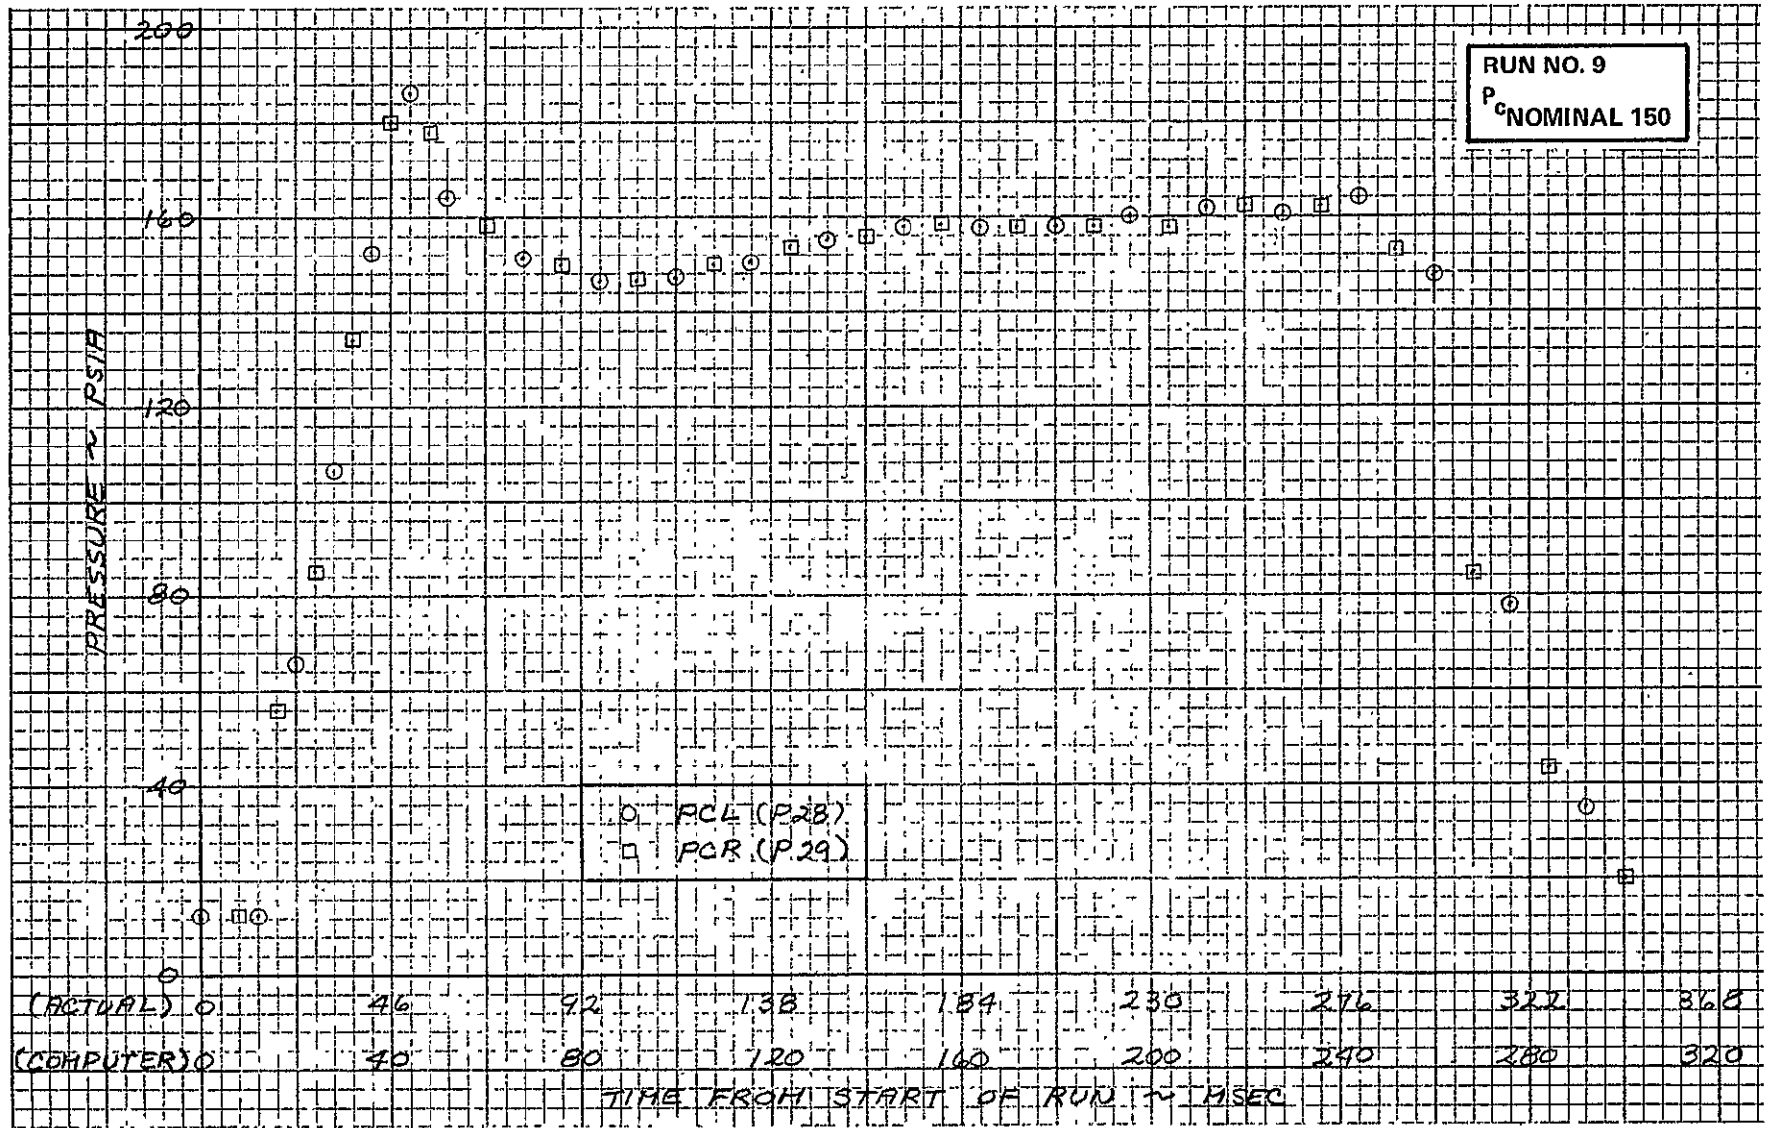 200
RUN NO. 9
Pc NOMINAL 150
160
PRESSURE ~ PSIA
120
80
40
○ PCL (P28)
□ PCR (P29)
0
(ACTUAL) 0 46 92 138 184 230 276 322 368
(COMPUTER) 0 40 80 120 160 200 240 280 320
TIME FROM START OF RUN ~ MSEC